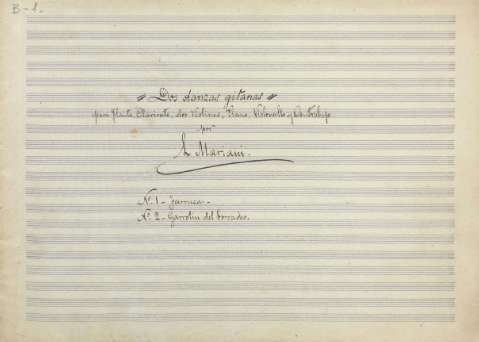 B-1.
Dos danzas gitanas
para Flauta, Clarinete, dos Violines, Piano, Violoncello y Contrabajo
por
L. Mariani.
Nº. 1 - Farruca -
Nº. 2 - Garrotin del